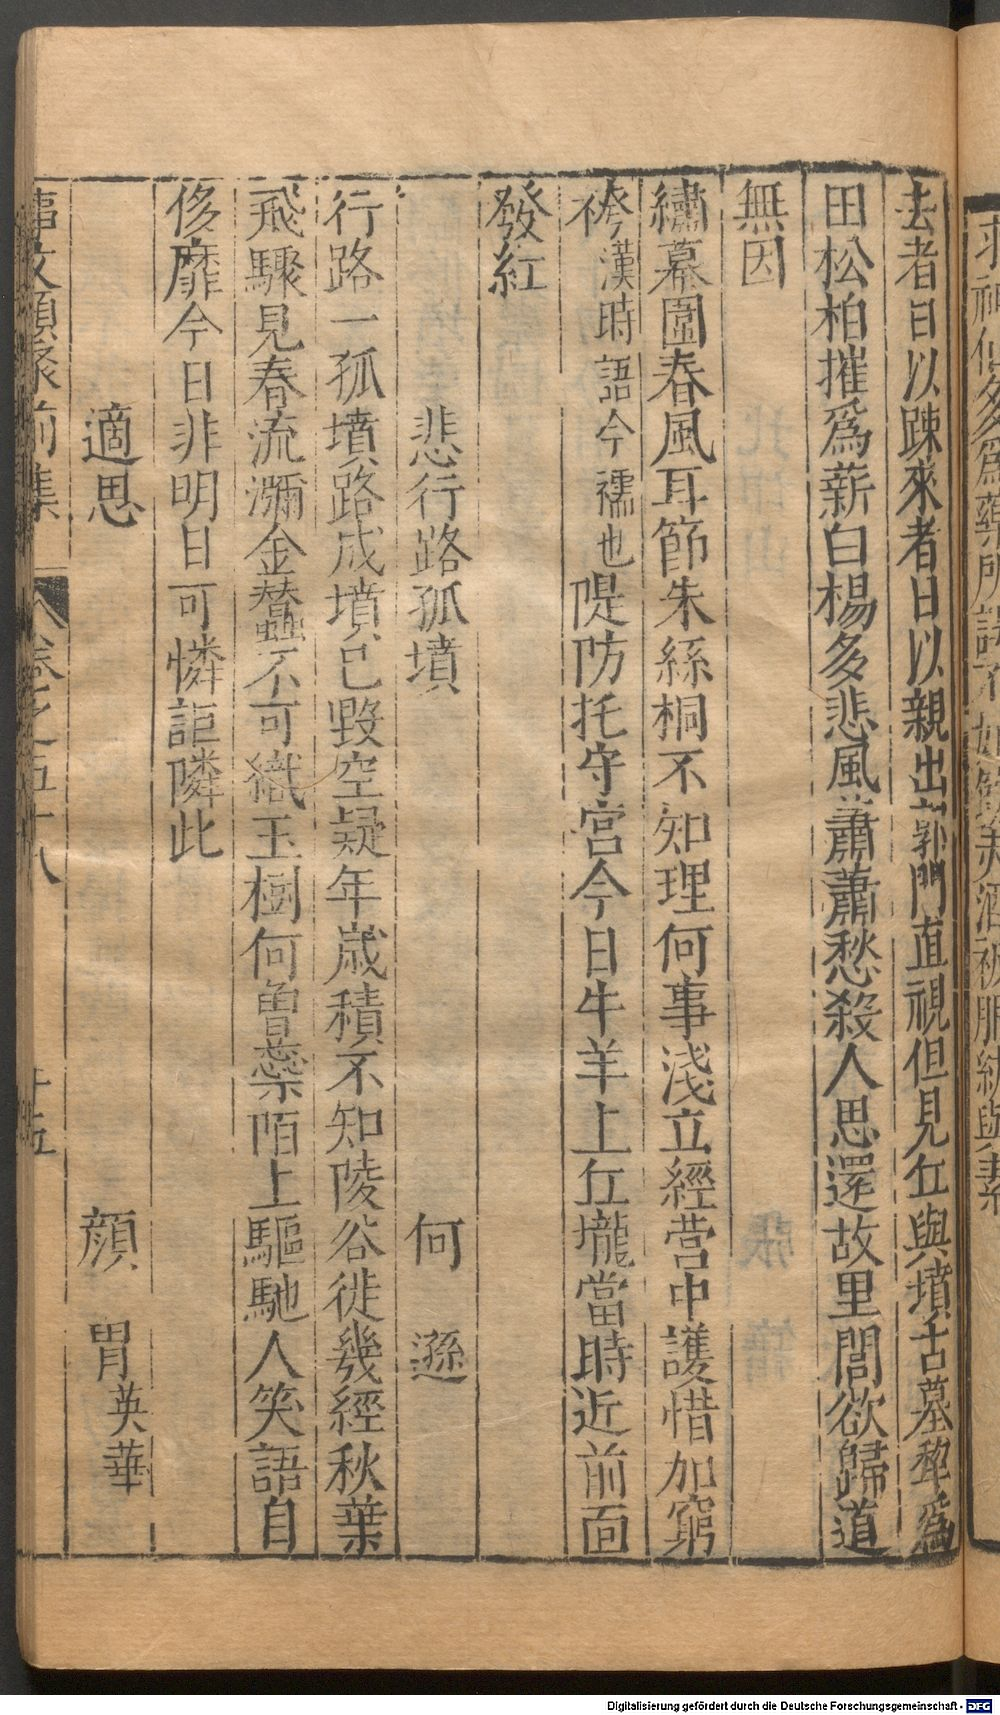 求神仙多為藥所誤不如飲美酒被服紈與素
去者日以踈來者日以親出郭門直視但見丘與墳古墓犂爲
田松柏摧爲薪白楊多悲風蕭蕭愁殺人思還故里閭欲歸道
無因
繡幕圍春風耳節朱絲桐不知理何事淺立經营中護惜加窮
袴漢時語今襦也隄防托守宫今日牛羊上丘壠當時近前面
發紅
悲行路孤墳 何遜
行路一孤墳路成墳已毀空疑年歲積不知陵谷徙幾經秋葉
飛驟見春流瀰金蠶不可織玉樹何曾蘂陌上驅馳人笑語自
侈靡今日非明日可憐詎隣此
適思 顔胃英華
事文類聚前集 卷之五十八 十五
Digitalisierung gefördert durch die Deutsche Forschungsgemeinschaft - DFG